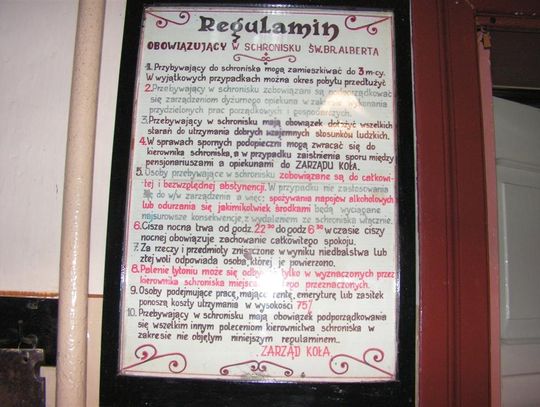 Regulamin
OBOWIĄZUJĄCY W SCHRONISKU ŚW.BR.ALBERTA
1. Przybywający do schroniska mogą zamieszkiwać do 3 m-cy.
W wyjątkowych przypadkach można okres pobytu przedłużyć
2. Przebywający w schronisku zobowiązani są podporządkować
się zarządzeniom dyżurnego opiekuna w zakresie wykonania
przydzielonych prac porządkowych i gospodarczych.
3. Przebywający w schronisku mają obowiązek dołożyć wszelkich
starań do utrzymania dobrych wzajemnych stosunków ludzkich.
4. W sprawach spornych podopieczni mogą zwracać się do
kierownika schroniska, a w przypadku zaistnienia sporu między
pensjonariuszami a opiekunami do ZARZĄDU KOŁA.
5. Osoby przebywające w schronisku zobowiązane są do całkowi-
tej i bezwzględnej abstynencji. W przypadku nie zastosowania
się do w/w zarządzenia a więc: spożywania napojów alkoholowych
lub odurzania się jakimikolwiek środkami będą wyciągane
najsurowsze konsekwencje z wydaleniem ze schroniska włącznie.
6. Cisza nocna trwa od godz. 22 30 do godz 6 30 w czasie ciszy
nocnej obowiązuje zachowanie całkowitego spokoju.
7. Za rzeczy i przedmioty zniszczone w wyniku niedbalstwa lub
złej woli odpowiada osoba, której je powierzono.
8. Palenie tytoniu może się odbywać tylko w wyznaczonych przez
kierownika schroniska miejscach do tego przeznaczonych.
9. Osoby podejmujące pracę, mające rentę, emeryturę lub zasiłek
ponoszą koszty utrzymania w wysokości 75%
10. Przebywający w schronisku mają obowiązek podporządkowania
się wszelkim innym poleceniom kierownictwa schroniska w
zakresie nie objętym niniejszym regulaminem..
ZARZĄD KOŁA.